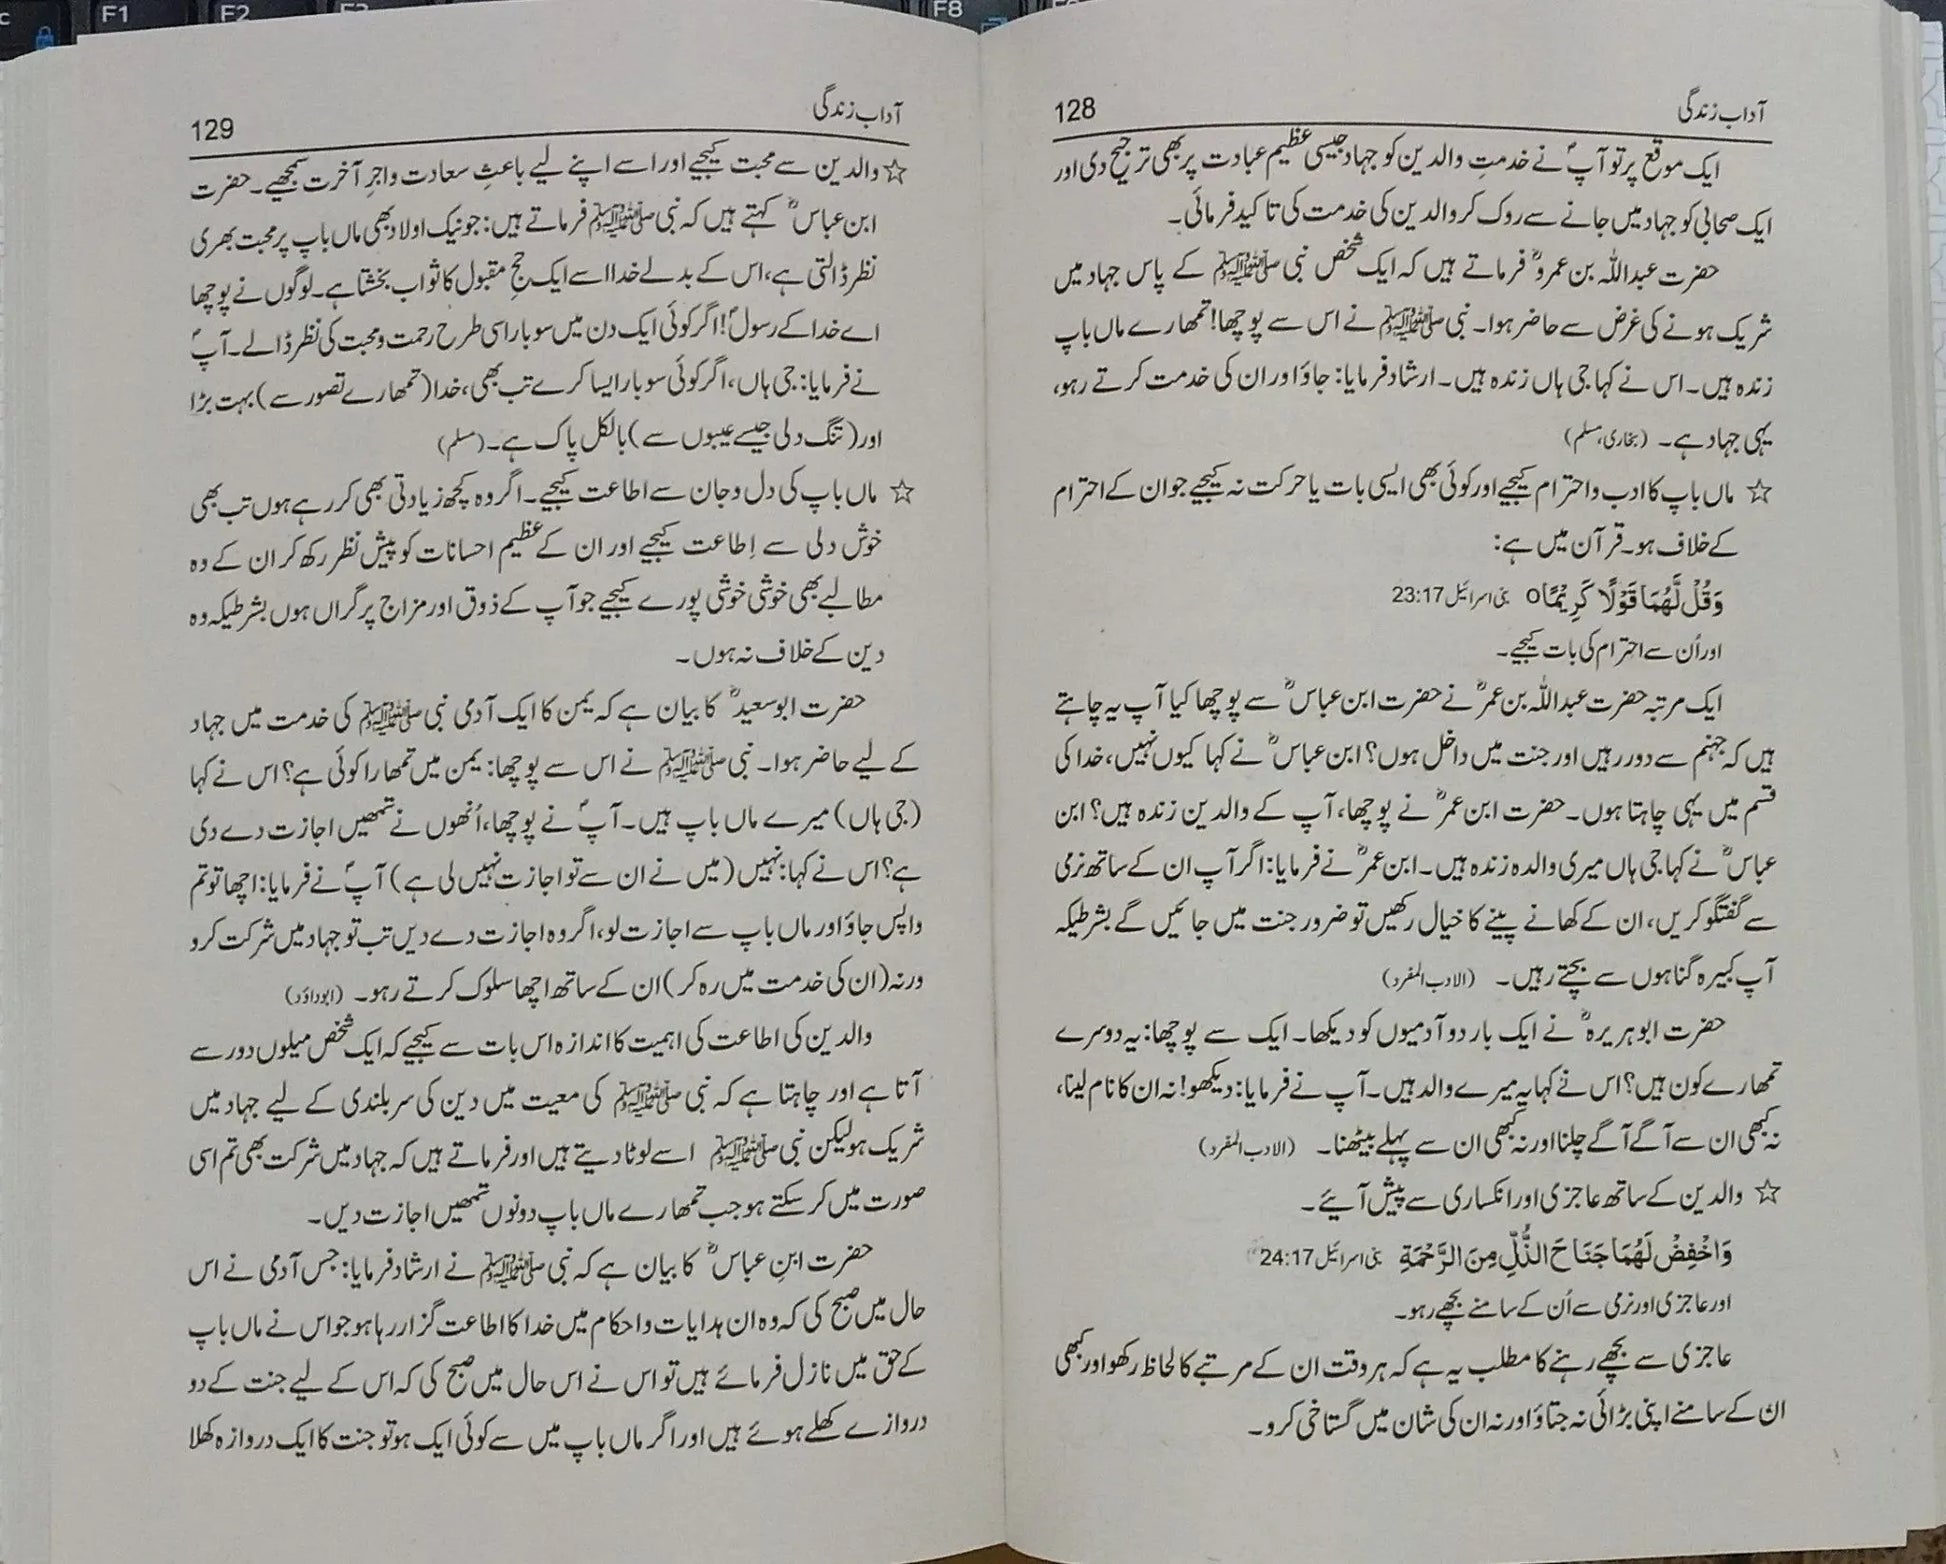 آداب زندگی 128
ایک موقع پر تو آپؐ نے خدمتِ والدین کو جہاد جیسی عظیم عبادت پر بھی ترجیح دی اور
ایک صحابی کو جہاد میں جانے سے روک کر والدین کی خدمت کی تاکید فرمائی۔
حضرت عبداللہ بن عمروؓ فرماتے ہیں کہ ایک شخص نبی ﷺ کے پاس جہاد میں
شریک ہونے کی غرض سے حاضر ہوا۔ نبی ﷺ نے اس سے پوچھا! تمھارے ماں باپ
زندہ ہیں۔ اس نے کہا جی ہاں زندہ ہیں۔ ارشاد فرمایا: جاؤ اور ان کی خدمت کرتے رہو،
یہی جہاد ہے۔ (بخاری، مسلم)
☆ ماں باپ کا ادب و احترام کیجیے اور کوئی بھی ایسی بات یا حرکت نہ کیجیے جو ان کے احترام
کے خلاف ہو۔ قرآن میں ہے:
وَقُلْ لَّهُمَا قَوْلًا كَرِيْمًا o بنی اسرائیل 23:17
اور اُن سے احترام کی بات کیجیے۔
ایک مرتبہ حضرت عبداللہ بن عمرؓ نے حضرت ابن عباسؓ سے پوچھا کیا آپ یہ چاہتے
ہیں کہ جہنم سے دور رہیں اور جنت میں داخل ہوں؟ ابن عباسؓ نے کہا کیوں نہیں، خدا کی
قسم میں یہی چاہتا ہوں۔ حضرت ابن عمرؓ نے پوچھا، آپ کے والدین زندہ ہیں؟ ابن
عباسؓ نے کہا جی ہاں میری والدہ زندہ ہیں۔ ابن عمرؓ نے فرمایا: اگر آپ ان کے ساتھ نرمی
سے گفتگو کریں، ان کے کھانے پینے کا خیال رکھیں تو ضرور جنت میں جائیں گے بشرطیکہ
آپ کبیرہ گناہوں سے بچتے رہیں۔ (الادب المفرد)
حضرت ابوہریرہؓ نے ایک بار دو آدمیوں کو دیکھا۔ ایک سے پوچھا: یہ دوسرے
تمھارے کون ہیں؟ اس نے کہا یہ میرے والد ہیں۔ آپ نے فرمایا: دیکھو! نہ ان کا نام لینا،
نہ کبھی ان سے آگے آگے چلنا اور نہ کبھی ان سے پہلے بیٹھنا۔ (الادب المفرد)
☆ والدین کے ساتھ عاجزی اور انکساری سے پیش آئیے۔
وَاخْفِضْ لَهُمَا جَنَاحَ الذُّلِّ مِنَ الرَّحْمَةِ بنی اسرائیل 24:17
اور عاجزی اور نرمی سے اُن کے سامنے بچھے رہو۔
عاجزی سے بچھے رہنے کا مطلب یہ ہے کہ ہر وقت ان کے مرتبے کا لحاظ رکھو اور کبھی
ان کے سامنے اپنی بڑائی نہ جتاؤ اور نہ ان کی شان میں گستاخی کرو۔
آداب زندگی 129
☆ والدین سے محبت کیجیے اور اسے اپنے لیے باعثِ سعادت و اجرِ آخرت سمجھیے۔ حضرت
ابن عباسؓ کہتے ہیں کہ نبی ﷺ فرماتے ہیں: جو نیک اولاد بھی ماں باپ پر محبت بھری
نظر ڈالتی ہے، اس کے بدلے خدا اسے ایک حجِ مقبول کا ثواب بخشتا ہے۔ لوگوں نے پوچھا
اے خدا کے رسولؐ! اگر کوئی ایک دن میں سو بار اسی طرح رحمت و محبت کی نظر ڈالے۔ آپؐ
نے فرمایا: جی ہاں، اگر کوئی سو بار ایسا کرے تب بھی، خدا (تمھارے تصور سے) بہت بڑا
اور (تنگ دلی جیسے عیبوں سے) بالکل پاک ہے۔ (مسلم)
☆ ماں باپ کی دل و جان سے اطاعت کیجیے۔ اگر وہ کچھ زیادتی بھی کر رہے ہوں تب بھی
خوش دلی سے اِطاعت کیجیے اور ان کے عظیم احسانات کو پیش نظر رکھ کر ان کے وہ
مطالبے بھی خوشی خوشی پورے کیجیے جو آپ کے ذوق اور مزاج پر گراں ہوں بشرطیکہ وہ
دین کے خلاف نہ ہوں۔
حضرت ابو سعیدؓ کا بیان ہے کہ یمن کا ایک آدمی نبی ﷺ کی خدمت میں جہاد
کے لیے حاضر ہوا۔ نبی ﷺ نے اس سے پوچھا: یمن میں تمھارا کوئی ہے؟ اس نے کہا
(جی ہاں) میرے ماں باپ ہیں۔ آپؐ نے پوچھا، اُنھوں نے تمھیں اجازت دے دی
ہے؟ اس نے کہا: نہیں (میں نے ان سے تو اجازت نہیں لی ہے) آپؐ نے فرمایا: اچھا تو تم
واپس جاؤ اور ماں باپ سے اجازت لو، اگر وہ اجازت دے دیں تب تو جہاد میں شرکت کرو
ورنہ (ان کی خدمت میں رہ کر) ان کے ساتھ اچھا سلوک کرتے رہو۔ (ابوداؤد)
والدین کی اطاعت کی اہمیت کا اندازہ اس بات سے کیجیے کہ ایک شخص میلوں دور سے
آتا ہے اور چاہتا ہے کہ نبی ﷺ کی معیت میں دین کی سربلندی کے لیے جہاد میں
شریک ہو لیکن نبی ﷺ اسے لوٹا دیتے ہیں اور فرماتے ہیں کہ جہاد میں شرکت بھی تم اسی
صورت میں کر سکتے ہو جب تمھارے ماں باپ دونوں تمھیں اجازت دیں۔
حضرت ابنِ عباسؓ کا بیان ہے کہ نبی ﷺ نے ارشاد فرمایا: جس آدمی نے اس
حال میں صبح کی کہ وہ ان ہدایات و احکام میں خدا کا اطاعت گزار رہا ہو جو اس نے ماں باپ
کے حق میں نازل فرمائے ہیں تو اس نے اس حال میں صبح کی کہ اس کے لیے جنت کے دو
دروازے کھلے ہوئے ہیں اور اگر ماں باپ میں سے کوئی ایک ہو تو جنت کا ایک دروازہ کھلا